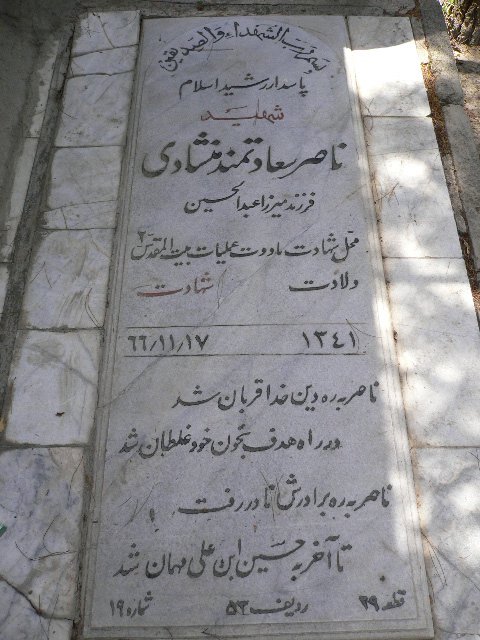 بسم رب الشهداء و الصدیقین
پاسدار رشید اسلام
شهید
ناصر سعادتمند منشادی
فرزند میرزا عبدالحسین
محل شهادت ماووت عملیات بیت المقدس ۲
ولادت شهادت
۱۳۴۱ ۶۶/۱۱/۱۷
ناصر به ره دین خدا قربان شد
در راه هدف بخون خود غلطان شد
ناصر به ره برادرش نادر رفت
تا آخر به حسین ابن علی مهمان شد
قطعه ۲۹ ردیف ۵۳ شماره ۱۹